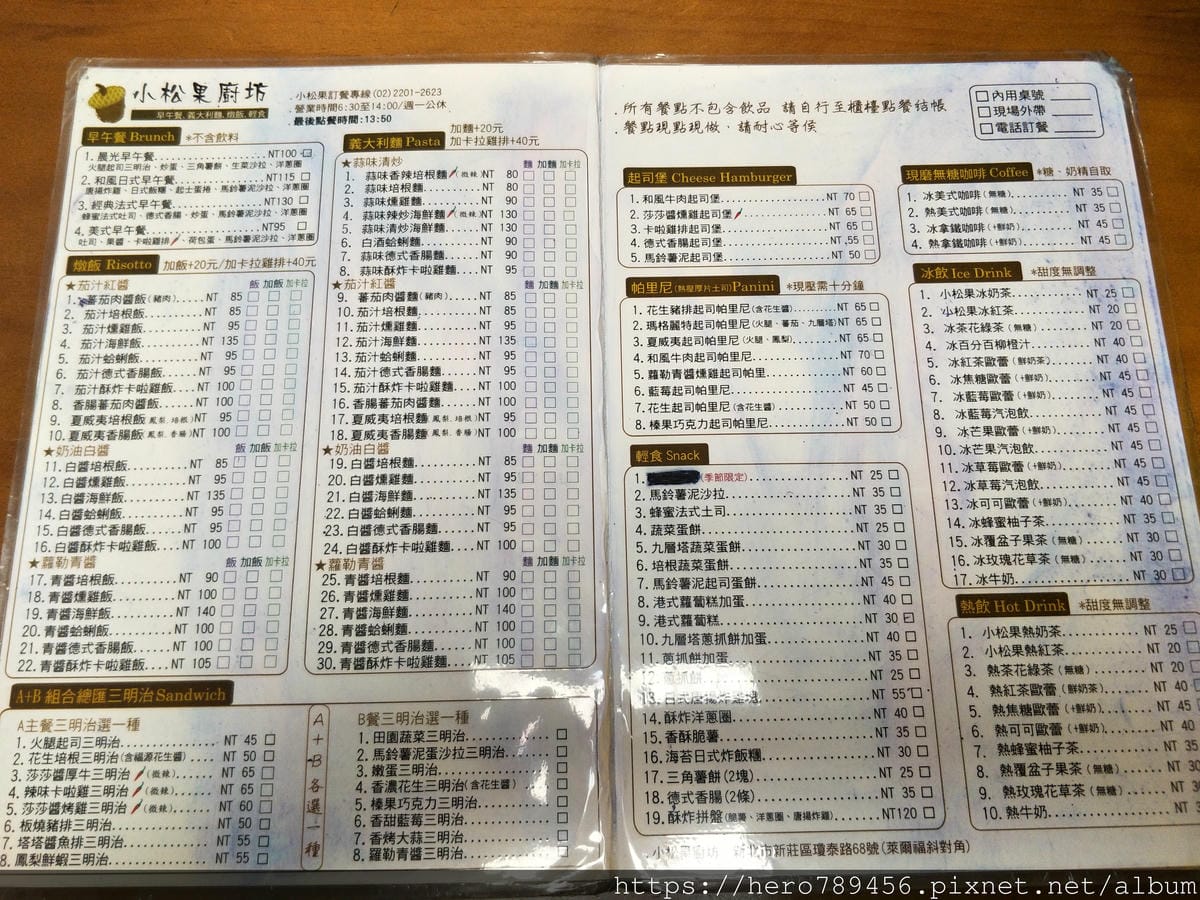 小松果廚坊
早午餐、義大利麵、燉飯、輕食
小松果訂餐專線(02)2201-2623
營業時間6:30至14:00/週一公休
最後點餐時間:13:50
早午餐 Brunch *不含飲料
1. 晨光早午餐 NT100
火腿起司三明治、炒蛋、三角薯餅、生菜沙拉、洋蔥圈
2. 和風日式早午餐 NT115
唐揚炸雞、日式飯糰、起士蛋捲、馬鈴薯泥沙拉、洋蔥圈
3. 經典法式早午餐 NT130
蜂蜜法式吐司、德式香腸、炒蛋、馬鈴薯泥沙拉、洋蔥圈
4. 美式早午餐 NT95
吐司、果醬、卡啦雞排、荷包蛋、馬鈴薯泥沙拉、洋蔥圈
燉飯 Risotto 加飯+20元/加卡拉雞排+40元
★茄汁紅醬 飯 加飯 加卡拉
1. 蕃茄肉醬飯(豬肉) NT 85
2. 茄汁培根飯 NT 85
3. 茄汁燻雞飯 NT 95
4. 茄汁海鮮飯 NT 135
5. 茄汁蛤蜊飯 NT 95
6. 茄汁德式香腸飯 NT 95
7. 茄汁酥炸卡啦雞飯 NT 100
8. 香腸蕃茄肉醬飯 NT 100
9. 夏威夷培根飯 鳳梨.培根 NT 95
10. 夏威夷香腸飯 鳳梨.香腸 NT 100
★奶油白醬 飯 加飯 加卡拉
11. 白醬培根飯 NT 85
12. 白醬燻雞飯 NT 95
13. 白醬海鮮飯 NT 135
14. 白醬蛤蜊飯 NT 95
15. 白醬德式香腸飯 NT 95
16. 白醬酥炸卡啦雞飯 NT 100
★蘿勒青醬 飯 加飯 加卡拉
17. 青醬培根飯 NT 90
18. 青醬燻雞飯 NT 100
19. 青醬海鮮飯 NT 140
20. 青醬蛤蜊飯 NT 100
21. 青醬德式香腸飯 NT 100
22. 青醬酥炸卡啦雞飯 NT 105
義大利麵 Pasta 加麵+20元
加卡拉雞排+40元
★蒜味清炒 麵 加麵 加卡拉
1. 蒜味香辣培根麵(微辣) NT 80
2. 蒜味培根麵 NT 80
3. 蒜味燻雞麵 NT 90
4. 蒜味辣炒海鮮麵(微辣) NT 130
5. 蒜味清炒海鮮麵 NT 130
6. 白酒蛤蜊麵 NT 90
7. 蒜味德式香腸麵 NT 90
8. 蒜味酥炸卡啦雞麵 NT 90
★茄汁紅醬 麵 加麵 加卡拉
9. 蕃茄肉醬麵(豬肉) NT 85
10. 茄汁培根麵 NT 85
11. 茄汁燻雞麵 NT 95
12. 茄汁海鮮麵 NT 135
13. 茄汁蛤蜊麵 NT 95
14. 茄汁德式香腸麵 NT 95
15. 茄汁酥炸卡啦雞麵 NT 100
16. 香腸蕃茄肉醬麵 NT 100
17. 夏威夷培根麵 鳳梨.培根 NT 95
18. 夏威夷香腸麵 鳳梨.香腸 NT 100
★奶油白醬 麵 加麵 加卡拉
19. 白醬培根麵 NT 85
20. 白醬燻雞麵 NT 95
21. 白醬海鮮麵 NT 135
22. 白醬蛤蜊麵 NT 95
23. 白醬德式香腸麵 NT 95
24. 白醬酥炸卡啦雞麵 NT 100
★蘿勒青醬 麵 加麵 加卡拉
25. 青醬培根麵 NT 90
26. 青醬燻雞麵 NT 100
27. 青醬海鮮麵 NT 140
28. 青醬蛤蜊麵 NT 100
29. 青醬德式香腸麵 NT 100
30. 青醬酥炸卡啦雞麵 NT 105
A+B 組合總匯三明治 Sandwich
A主餐三明治選一種
1. 火腿起司三明治 NT 45
2. 花生培根三明治(含福源花生醬) NT 50
3. 莎莎醬厚牛三明治(微辣) NT 65
4. 辣味卡啦雞三明治(微辣) NT 65
5. 莎莎醬烤雞三明治(微辣) NT 60
6. 板燒豬排三明治 NT 50
7. 塔塔醬魚排三明治 NT 55
8. 鳳梨鮮蝦三明治 NT 55
A+B各選一種
B餐三明治選一種
1. 田園蔬菜三明治
2. 馬鈴薯泥蛋沙拉三明治
3. 嫩蛋三明治
4. 香濃花生三明治(含花生醬)
5. 榛果巧克力三明治
6. 香甜藍莓三明治
7. 香烤大蒜三明治
8. 羅勒青醬三明治
所有餐點不包含飲品 請自行至櫃檯點餐結帳
餐點現點現做,請耐心等侯
內用桌號
現場外帶
電話訂餐
起司堡 Cheese Hamburger
1. 和風牛肉起司堡 NT 70
2. 莎莎醬燻雞起司堡 NT 65
3. 卡啦雞起司堡 NT 65
4. 德式香腸起司堡 NT 55
5. 馬鈴薯泥起司堡 NT 50
帕里尼(熱壓厚片土司)Panini *現壓需十分鐘
1. 花生豬排起司帕里尼(含花生醬) NT 65
2. 瑪格麗特起司帕里尼(火腿、蕃茄、九層塔) NT 65
3. 夏威夷起司帕里尼(火腿、鳳梨) NT 65
4. 和風牛肉起司帕里尼 NT 70
5. 蘿勒青醬燻雞起司帕里 NT 60
6. 藍莓起司帕里尼 NT 45
7. 花生起司帕里尼(含花生醬) NT 50
8. 榛果巧克力起司帕里尼 NT 50
輕食 Snack
1. (季節限定) NT 25
2. 馬鈴薯泥沙拉 NT 35
3. 蜂蜜法式土司 NT 35
4. 蔬菜蛋餅 NT 25
5. 九層塔蔬菜蛋餅 NT 30
6. 培根蔬菜蛋餅 NT 35
7. 馬鈴薯泥起司蛋餅 NT 45
8. 港式蘿蔔糕加蛋 NT 40
9. 港式蘿蔔糕 NT 30
10. 九層塔蔥抓餅加蛋 NT 40
11. 蔥抓餅加蛋 NT 35
12. 蔥抓餅 NT 25
13. 日式唐揚炸雞塊 NT 55
14. 酥炸洋蔥圈 NT 40
15. 香酥脆薯 NT 35
16. 海苔日式炸飯糰 NT 30
17. 三角薯餅(2塊) NT 25
18. 德式香腸(2條) NT 35
19. 酥炸拼盤(脆薯、洋蔥圈、唐揚炸雞) NT120
現磨無糖咖啡 Coffee *糖、奶精自取
1. 冰美式咖啡(無糖) NT 35
2. 熱美式咖啡(無糖) NT 35
3. 冰拿鐵咖啡(+鮮奶) NT 45
4. 熱拿鐵咖啡(+鮮奶) NT 45
冰飲 Ice Drink *甜度無調整
1. 小松果冰奶茶 NT 25
2. 小松果冰紅茶 NT 20
3. 冰茶花綠茶(無糖) NT 20
4. 冰百分百柳橙汁 NT 40
5. 冰紅茶歐蕾(鮮奶茶) NT 40
6. 冰焦糖歐蕾(+鮮奶) NT 45
7. 冰藍莓歐蕾(+鮮奶) NT 45
8. 冰藍莓汽泡飲 NT 45
9. 冰芒果歐蕾(+鮮奶) NT 45
10. 冰芒果汽泡飲 NT 45
11. 冰草莓歐蕾(+鮮奶) NT 45
12. 冰草莓汽泡飲 NT 45
13. 冰可可歐蕾(+鮮奶) NT 40
14. 冰蜂蜜柚子茶 NT 35
15. 冰覆盆子果茶(無糖) NT 30
16. 冰玫瑰花草茶(無糖) NT 30
17. 冰牛奶 NT 30
熱飲 Hot Drink *甜度無調整
1. 小松果熱奶茶 NT 25
2. 小松果熱紅茶 NT 20
3. 熱茶花綠茶(無糖) NT 20
4. 熱紅茶歐蕾(鮮奶茶) NT 40
5. 熱焦糖歐蕾(+鮮奶) NT 45
6. 熱可可歐蕾(+鮮奶) NT 40
7. 熱蜂蜜柚子茶 NT 35
8. 熱覆盆子果茶(無糖) NT 30
9. 熱玫瑰花草茶(無糖) NT
10. 熱牛奶 NT
小松果廚坊 新北市新莊區瓊泰路68號(萊爾福斜對角)
https://hero789456.pixnet.net/album